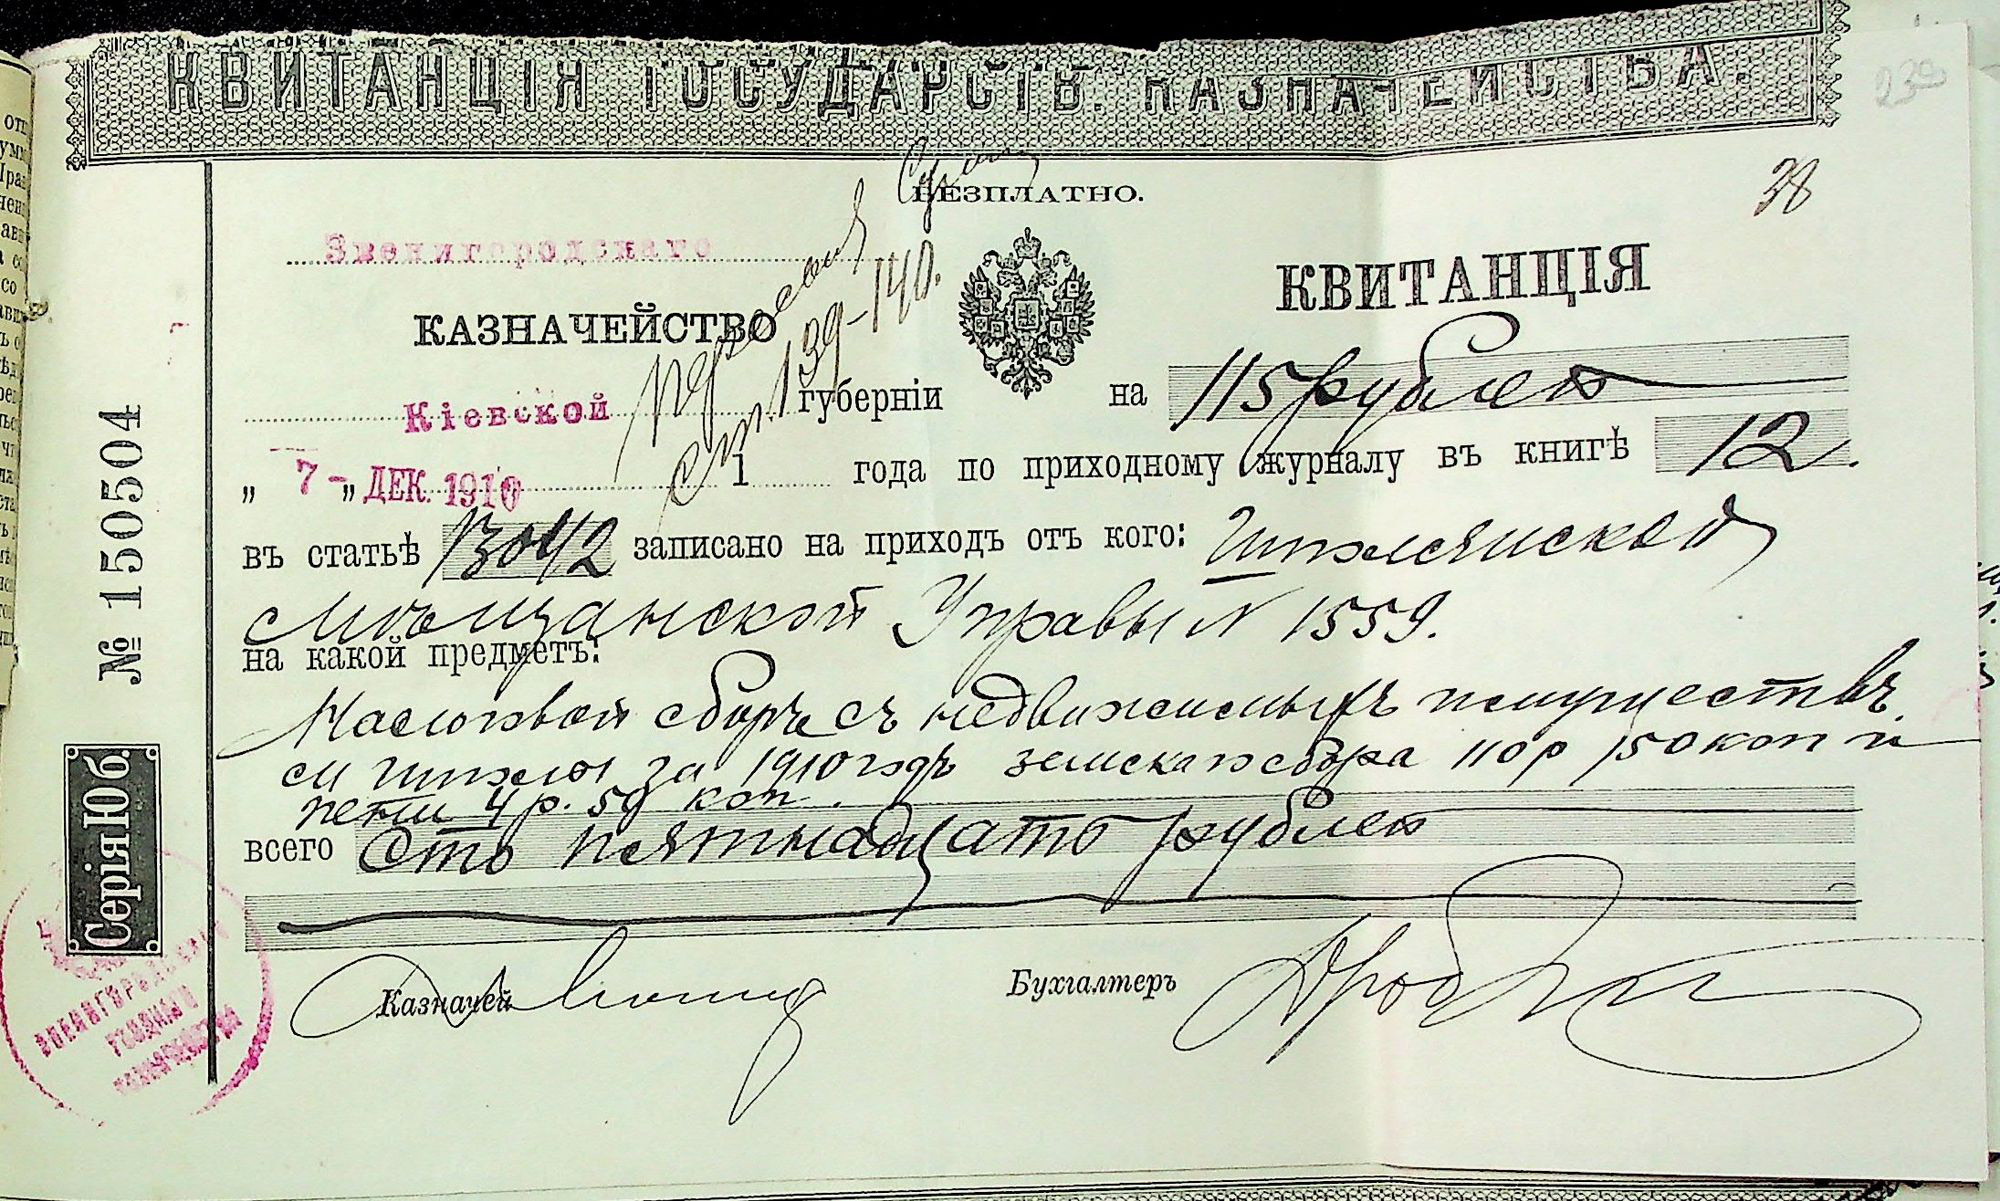 КВИТАНЦІЯ ГОСУДАРСТВ. КАЗНАЧЕЙСТВА.
239
38
БЕЗПЛАТНО.
Звенигородскаго
КАЗНАЧЕЙСТВО
Кіевской губерніи
стр. 139-140.
КВИТАНЦІЯ
на 115 рублей
„ 7 - „ ДЕК. 1910 1 года по приходному журналу въ книгѣ 12.
въ статьѣ 13042 записано на приходъ отъ кого: Шполянской
Мѣщанской Управы N 1559.
на какой предметъ:
сборъ съ недвижимыхъ имуществъ
м Шполы за 1910 годъ земскаго сбора 110 р 50 коп и
пени 4 р. 50 коп.
всего Сто пятнадцать рублей
Казначей
Бухгалтеръ
№ 150504
Серія Юб.
ЗВЕНИГОРОДСКАГО
КАЗНАЧЕЙСТВА